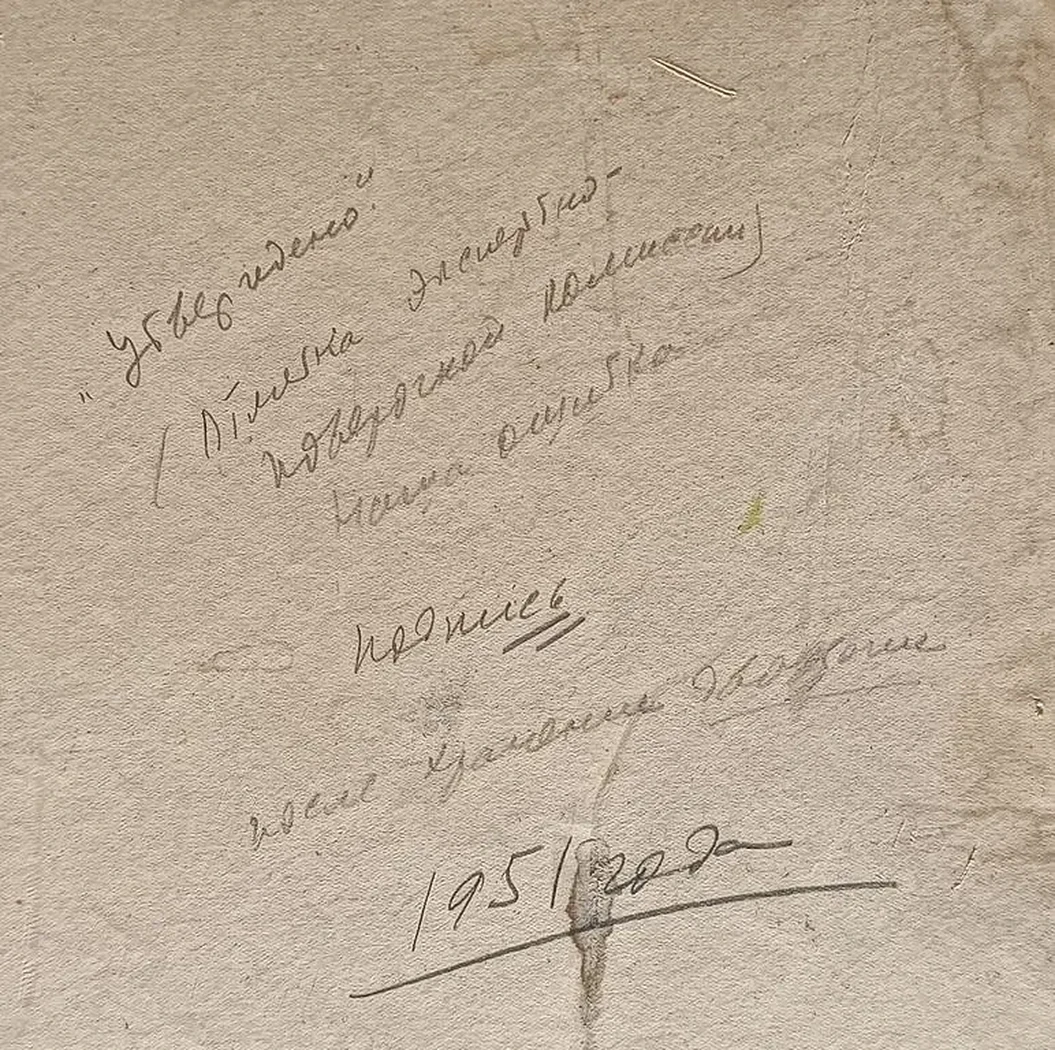 "Утверждено."
(Отметка Экспертно-
поверочной комиссии)
наша ошибка
подпись
после хранения
1951 года